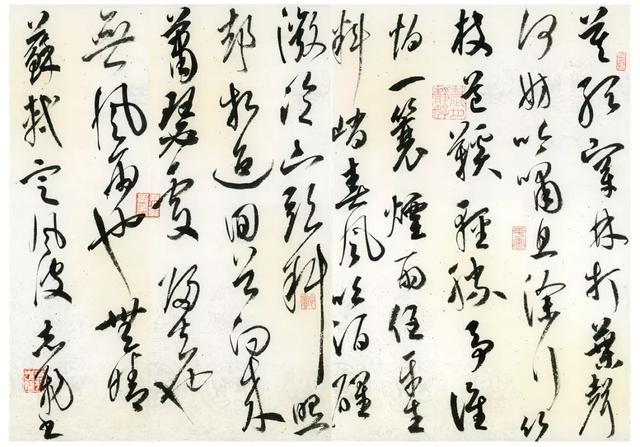 莫聽穿林打葉聲
何妨吟嘯且徐行竹
杖芒鞵輕勝馬誰
怕一蓑煙雨任平生
料峭春風吹酒醒
微冷山頭斜照
却相迎回首向來
蕭瑟處歸去也
無風雨也無晴
蘇軾定風波